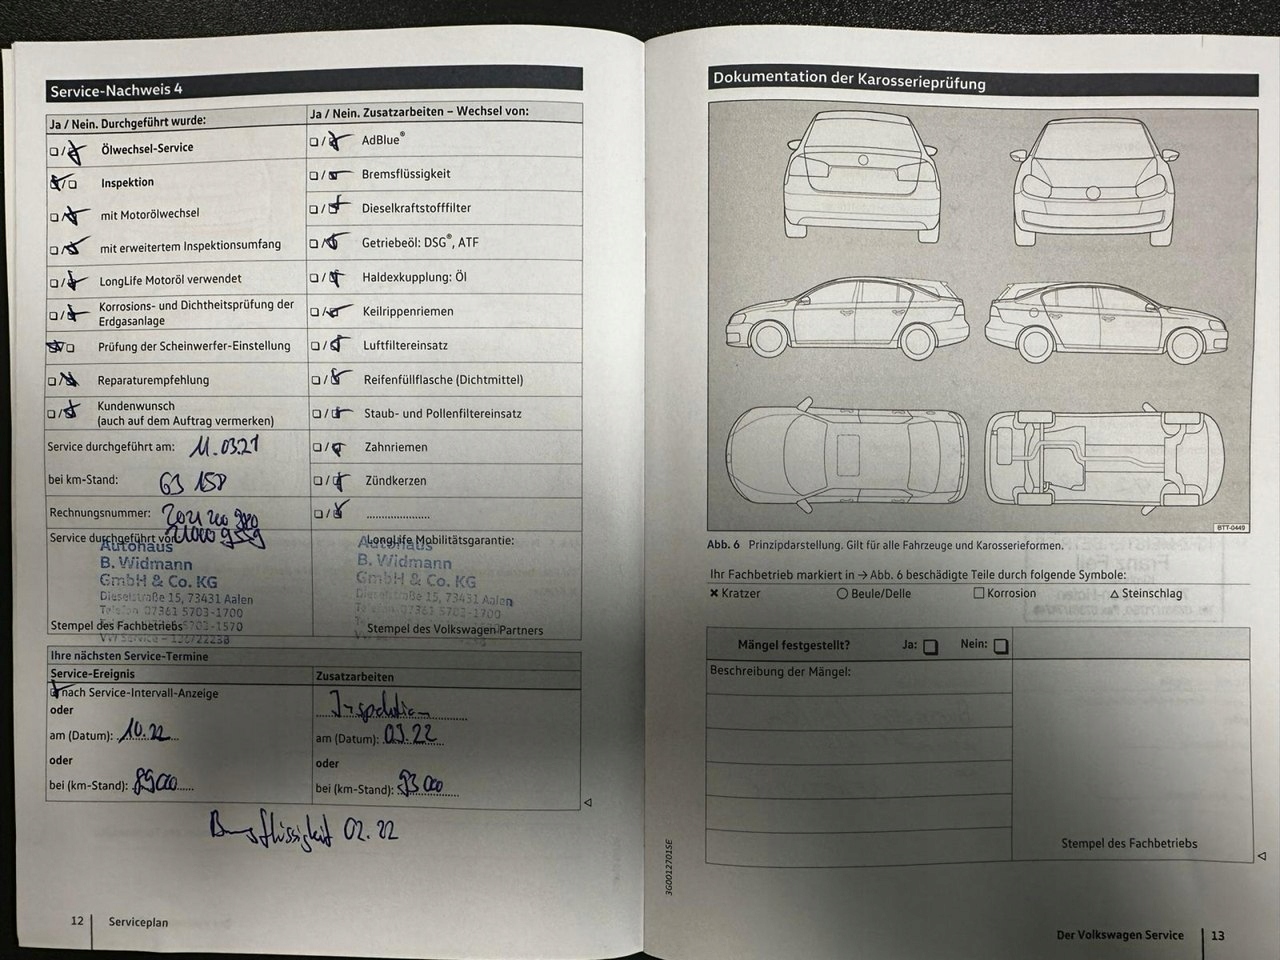 Service-Nachweis 4
Ja / Nein. Durchgeführt wurde:
Ölwechsel-Service
Inspektion
mit Motorölwechsel
mit erweitertem Inspektionsumfang
LongLife Motoröl verwendet
Korrosions- und Dichtheitsprüfung der
Erdgasanlage
Prüfung der Scheinwerfer-Einstellung
Reparaturempfehlung
Kundenwunsch
(auch auf dem Auftrag vermerken)
Service durchgeführt am: 11.03.21
bei km-Stand: 63 158
Rechnungsnummer: 2021 200 980
21000 9559
Service durchgeführt von:
Autohaus
B. Widmann
GmbH & Co. KG
Dieselstraße 15, 73431 Aalen
Telefon 07361 5703-1700
5703-1570
Stempel des Fachbetriebs
Ja / Nein. Zusatzarbeiten – Wechsel von:
AdBlue®
Bremsflüssigkeit
Dieselkraftstofffilter
Getriebeöl: DSG®, ATF
Haldexkupplung: Öl
Keilrippenriemen
Luftfiltereinsatz
Reifenfüllflasche (Dichtmittel)
Staub- und Pollenfiltereinsatz
Zahnriemen
Zündkerzen
LongLife Mobilitätsgarantie:
Autohaus
B. Widmann
GmbH & Co. KG
Dieselstraße 15, 73431 Aalen
Telefon 07361 5703-1700
Stempel des Volkswagen Partners
Ihre nächsten Service-Termine
Service-Ereignis
nach Service-Intervall-Anzeige
oder
am (Datum): 10.22
oder
bei (km-Stand): 89000
Zusatzarbeiten
Inspektion
am (Datum): 03.22
oder
bei (km-Stand): 93 000
Bremsflüssigkeit 02.22
12 Serviceplan
Dokumentation der Karosserieprüfung
BTT-0449
Abb. 6 Prinzipdarstellung. Gilt für alle Fahrzeuge und Karosserieformen.
Ihr Fachbetrieb markiert in → Abb. 6 beschädigte Teile durch folgende Symbole:
✖ Kratzer ○ Beule/Delle □ Korrosion △ Steinschlag
Mängel festgestellt? Ja: Nein:
Beschreibung der Mängel:
Stempel des Fachbetriebs
3G0012701SE
Der Volkswagen Service 13